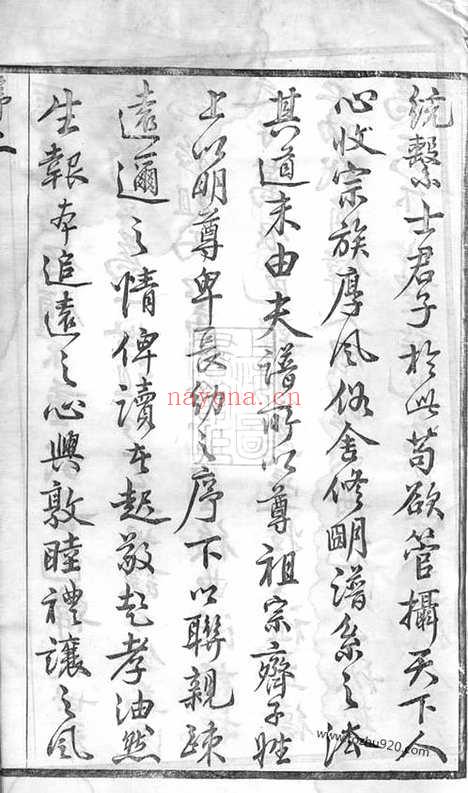 統繫士君子於此苟欲管攝天下人
心收宗族厚風俗舍修明譜系之法
其道未由夫譜所以尊祖宗齊子姓
上以明尊卑長幼之序下以聯親疎
遠邇之情俾讀者起敬起孝油然
生報本追遠之心興敦睦禮讓之風
序二
nayona.cn